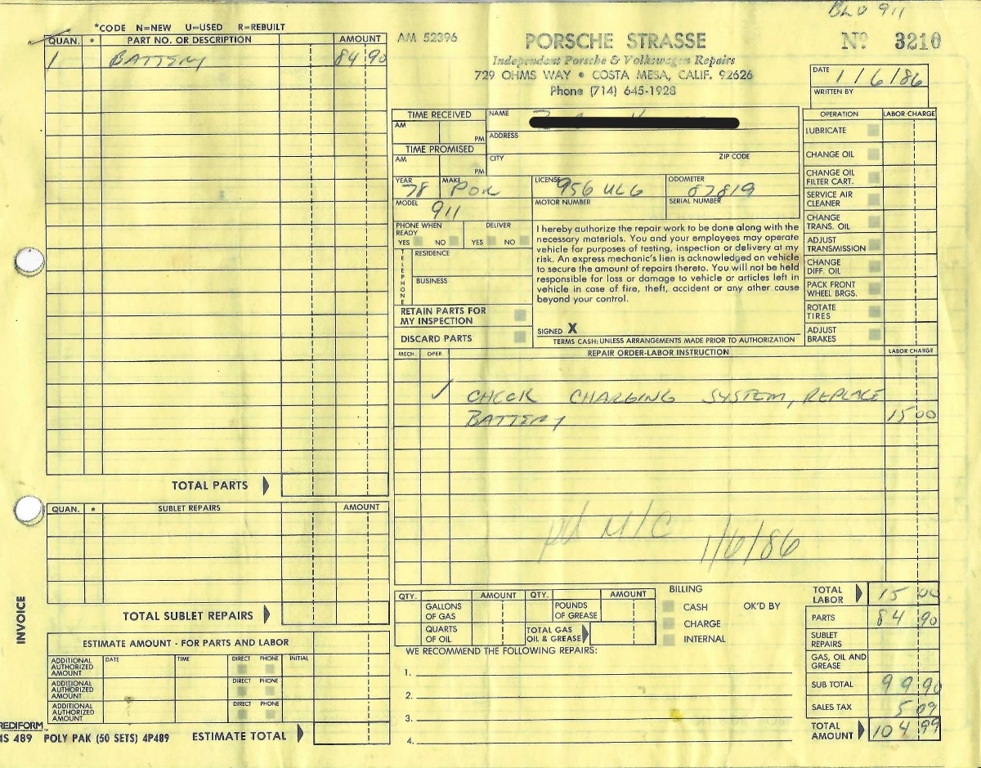 BLU 911
*CODE N=NEW U=USED R=REBUILT
QUAN. * PART NO. OR DESCRIPTION AMOUNT
1 BATTERY 84 90
TOTAL PARTS
QUAN. * SUBLET REPAIRS AMOUNT
TOTAL SUBLET REPAIRS
ESTIMATE AMOUNT - FOR PARTS AND LABOR
ADDITIONAL AUTHORIZED AMOUNT DATE TIME DIRECT PHONE INITIAL
ADDITIONAL AUTHORIZED AMOUNT DIRECT PHONE
ADDITIONAL AUTHORIZED AMOUNT DIRECT PHONE
INVOICE
REDIFORM
4S 489 POLY PAK (50 SETS) 4P489 ESTIMATE TOTAL
AM 52396
PORSCHE STRASSE
Independent Porsche & Volkswagen Repairs
729 OHMS WAY • COSTA MESA, CALIF. 92626
Phone (714) 645-1928
No 3210
DATE 1/6/86
WRITTEN BY
TIME RECEIVED
AM PM
TIME PROMISED
AM PM
NAME
ADDRESS
CITY ZIP CODE
YEAR 78 MAKE POR LICENSE 956 ULG ODOMETER 87819
MODEL 911 MOTOR NUMBER SERIAL NUMBER
PHONE WHEN READY DELIVER
YES NO YES NO
TELEPHONE
RESIDENCE
BUSINESS
RETAIN PARTS FOR
MY INSPECTION
DISCARD PARTS
I hereby authorize the repair work to be done along with the
necessary materials. You and your employees may operate
vehicle for purposes of testing, inspection or delivery at my
risk. An express mechanic's lien is acknowledged on vehicle
to secure the amount of repairs thereto. You will not be held
responsible for loss or damage to vehicle or articles left in
vehicle in case of fire, theft, accident or any other cause
beyond your control.
SIGNED X
TERMS CASH: UNLESS ARRANGEMENTS MADE PRIOR TO AUTHORIZATION
OPERATION LABOR CHARGE
LUBRICATE
CHANGE OIL
CHANGE OIL
FILTER CART.
SERVICE AIR
CLEANER
CHANGE
TRANS. OIL
ADJUST
TRANSMISSION
CHANGE
DIFF. OIL
PACK FRONT
WHEEL BRGS.
ROTATE
TIRES
ADJUST
BRAKES
MECH. OPER. REPAIR ORDER-LABOR INSTRUCTION LABOR CHARGE
✓ CHECK CHARGING SYSTEM, REPLACE
BATTERY 15 00
pd M/C 1/6/86
QTY. AMOUNT QTY. AMOUNT
GALLONS OF GAS POUNDS OF GREASE
QUARTS OF OIL TOTAL GAS OIL & GREASE
BILLING
CASH OK'D BY
CHARGE
INTERNAL
WE RECOMMEND THE FOLLOWING REPAIRS:
1.
2.
3.
4.
TOTAL LABOR 15 00
PARTS 84 90
SUBLET REPAIRS
GAS, OIL AND GREASE
SUB TOTAL 99 90
SALES TAX 5 09
TOTAL AMOUNT 104 99